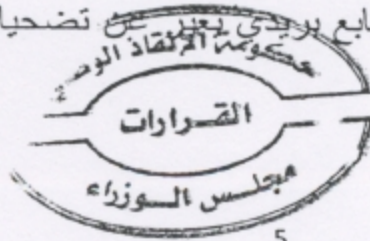 ابع بريدي يعبر عن تضحيا
حكومة الإنقاذ الوط
القرارات
مجلس الوزراء
5